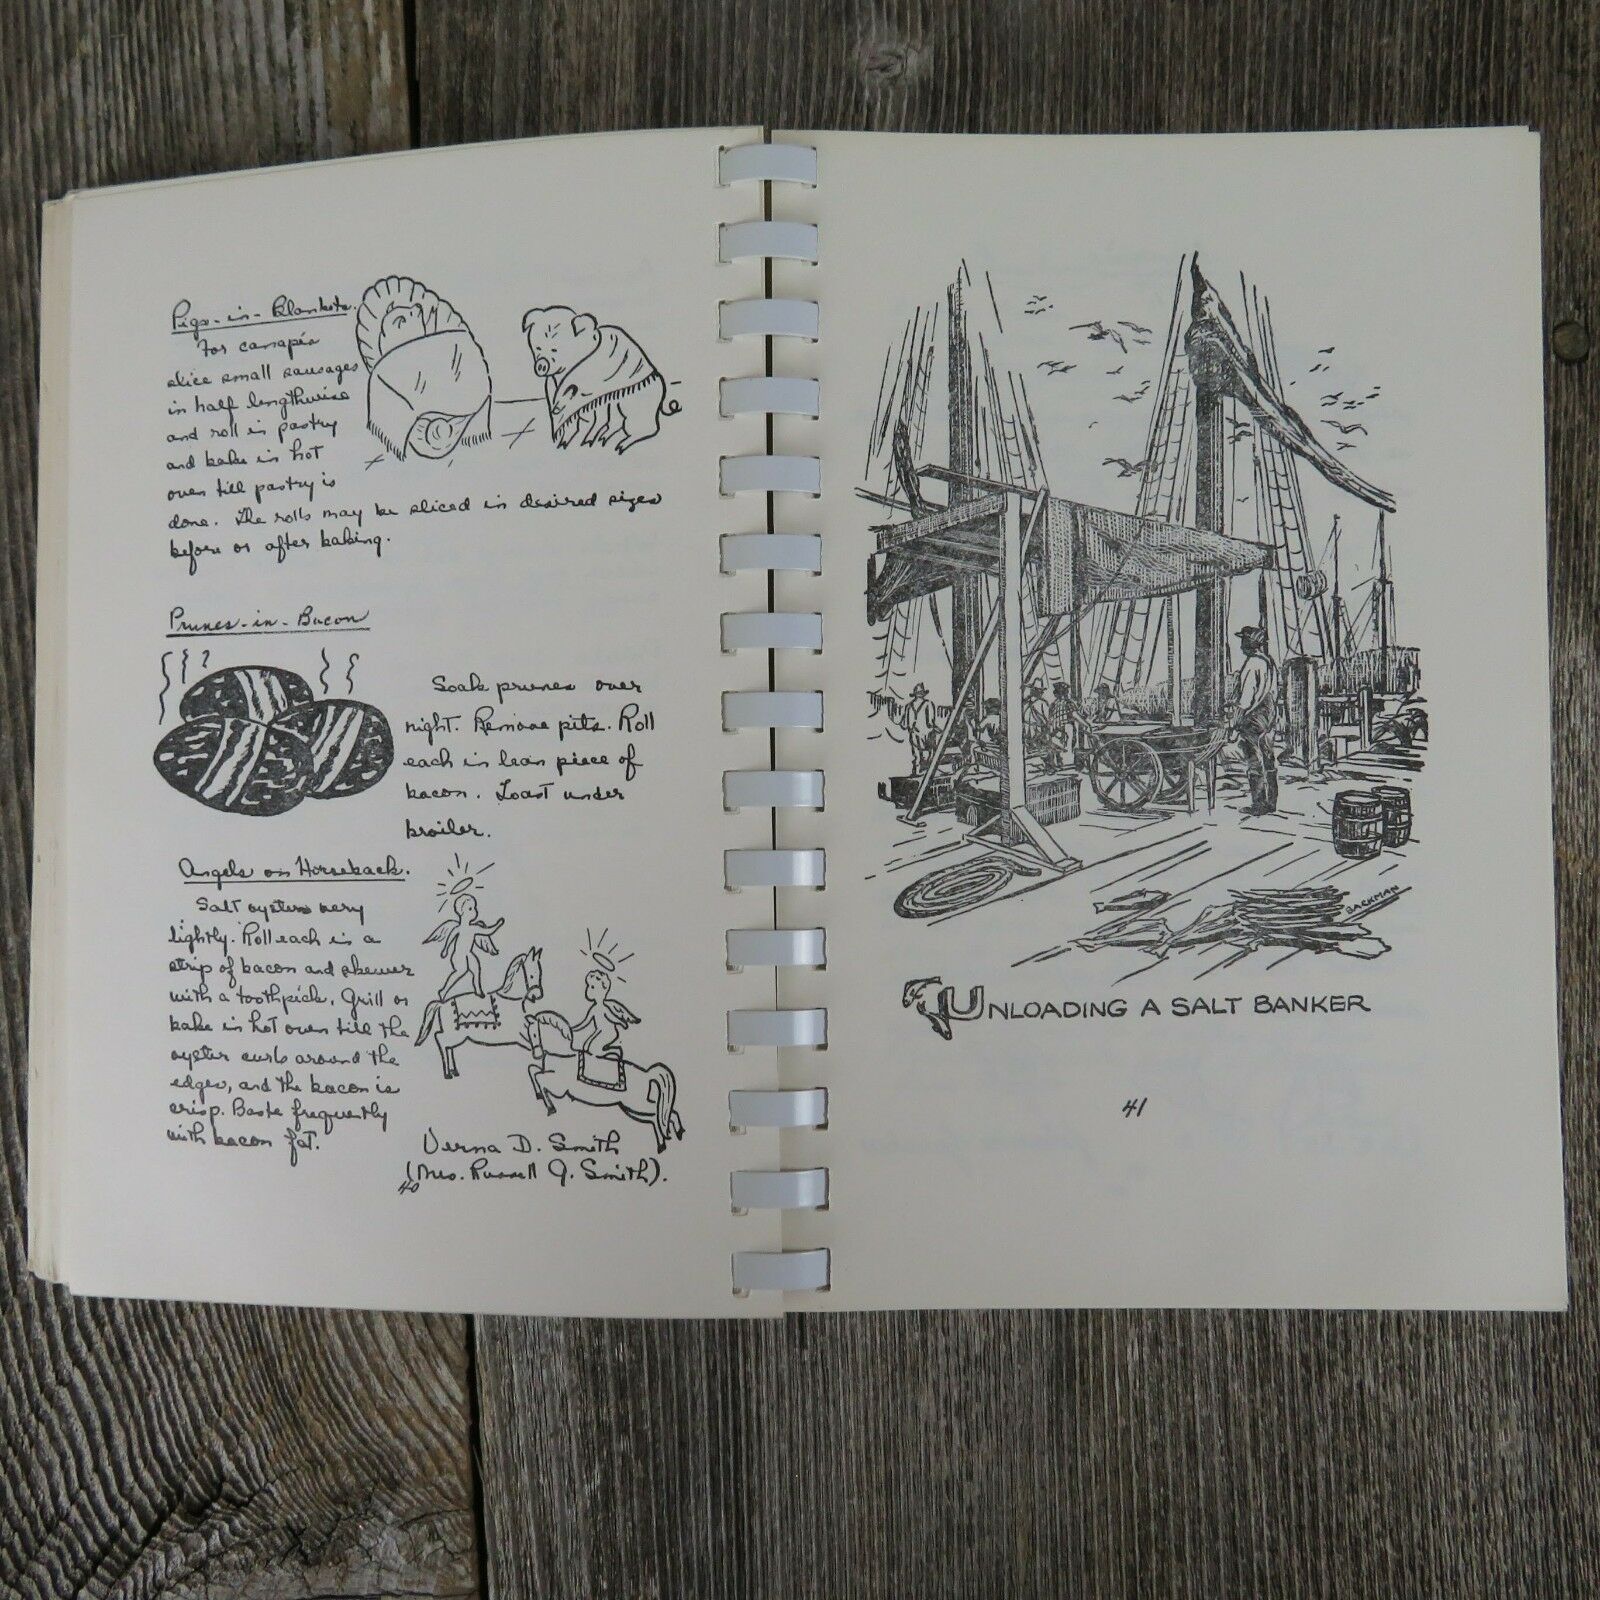 Pigs-in-Blankets.
For canapés
slice small sausages
in half lengthwise
and roll in pastry
and bake in hot
oven till pastry is
done. The rolls may be sliced in desired sizes
before or after baking.
Prunes-in-Bacon
Soak prunes over
night. Remove pits. Roll
each in lean piece of
bacon. Toast under
broiler.
Angels on Horseback.
Salt oysters very
lightly. Roll each in a
strip of bacon and skewer
with a toothpick. Grill or
bake in hot oven till the
oyster curls around the
edges, and the bacon is
crisp. Baste frequently
with bacon fat.
Verna D. Smith
(Mrs. Russell J. Smith).
40
BACKMAN
UNLOADING A SALT BANKER
41